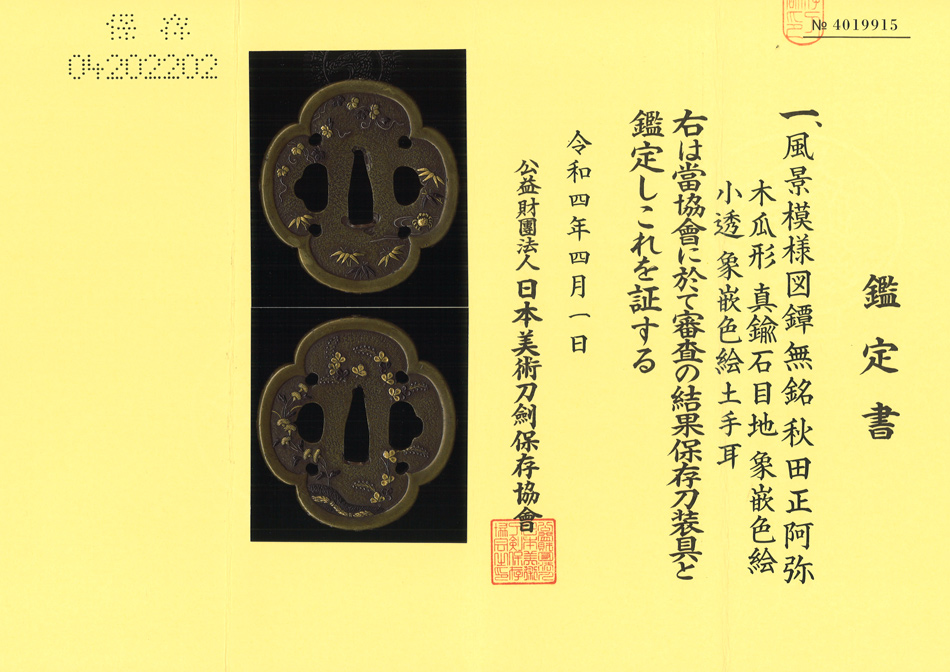 № 4019915
鑑定書
一、風景模様図鐔 無銘 秋田正阿弥
木瓜形 真鍮石目地 象嵌色絵
小透 象嵌色絵 土手耳
右は當協會に於て審査の結果保存刀装具と
鑑定しこれを証する
令和四年四月一日
公益財團法人 日本美術刀劍保存協會
保存
04202202